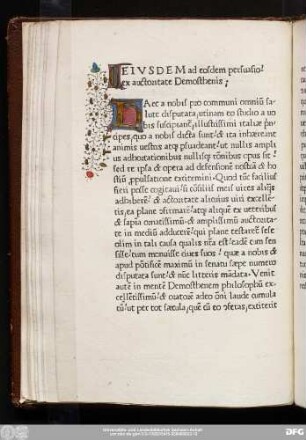 EIVSDEM ad eosdem persuasio
ex auctoritate Demosthenis;
Aec a nobis pro communi omniũ sa-
lute disputata, utinam eo studio a uo
bis suscipiant, illustrissimi italiæ pri
cipes, quo a nobis dicta sunt: & ita inhæreant
animis uestris atq; psuadeant: ut nullis ampliꝰ
us adhortationibus nullisq; monitiōibus opus sit
sed te ipsa & opera ad defensionē uostrã & ho
stiũ, ppulsatione excitemini. Quod tũc facilius
fieri posse cogitaui: si cōsilii mei uires aliq̃s
adhiberē: & auctoritate alicuius uiri excellē-
tis, ea plane confirmarē: atq; aliquē ex ueteribus
& sapiã ornatissimũ & amplissimũ auctorita-
te in mediũ adducerē: qui plane testaretē sese
olim in tali causa qualis nr̃a est: eadē cum sen-
sisse: tum monuisse ciues suos: quæ a nobis &
apud pōtificē maximũ in senatu sæpe numero
disputata sunt: & nũc litteris mãdata. Venit
autē in mentē Demosthenem philosophũ ex-
cellētissimũ: & oratorē adeo ōni laude cumula
tũ: ut per tot sæcula, quæ